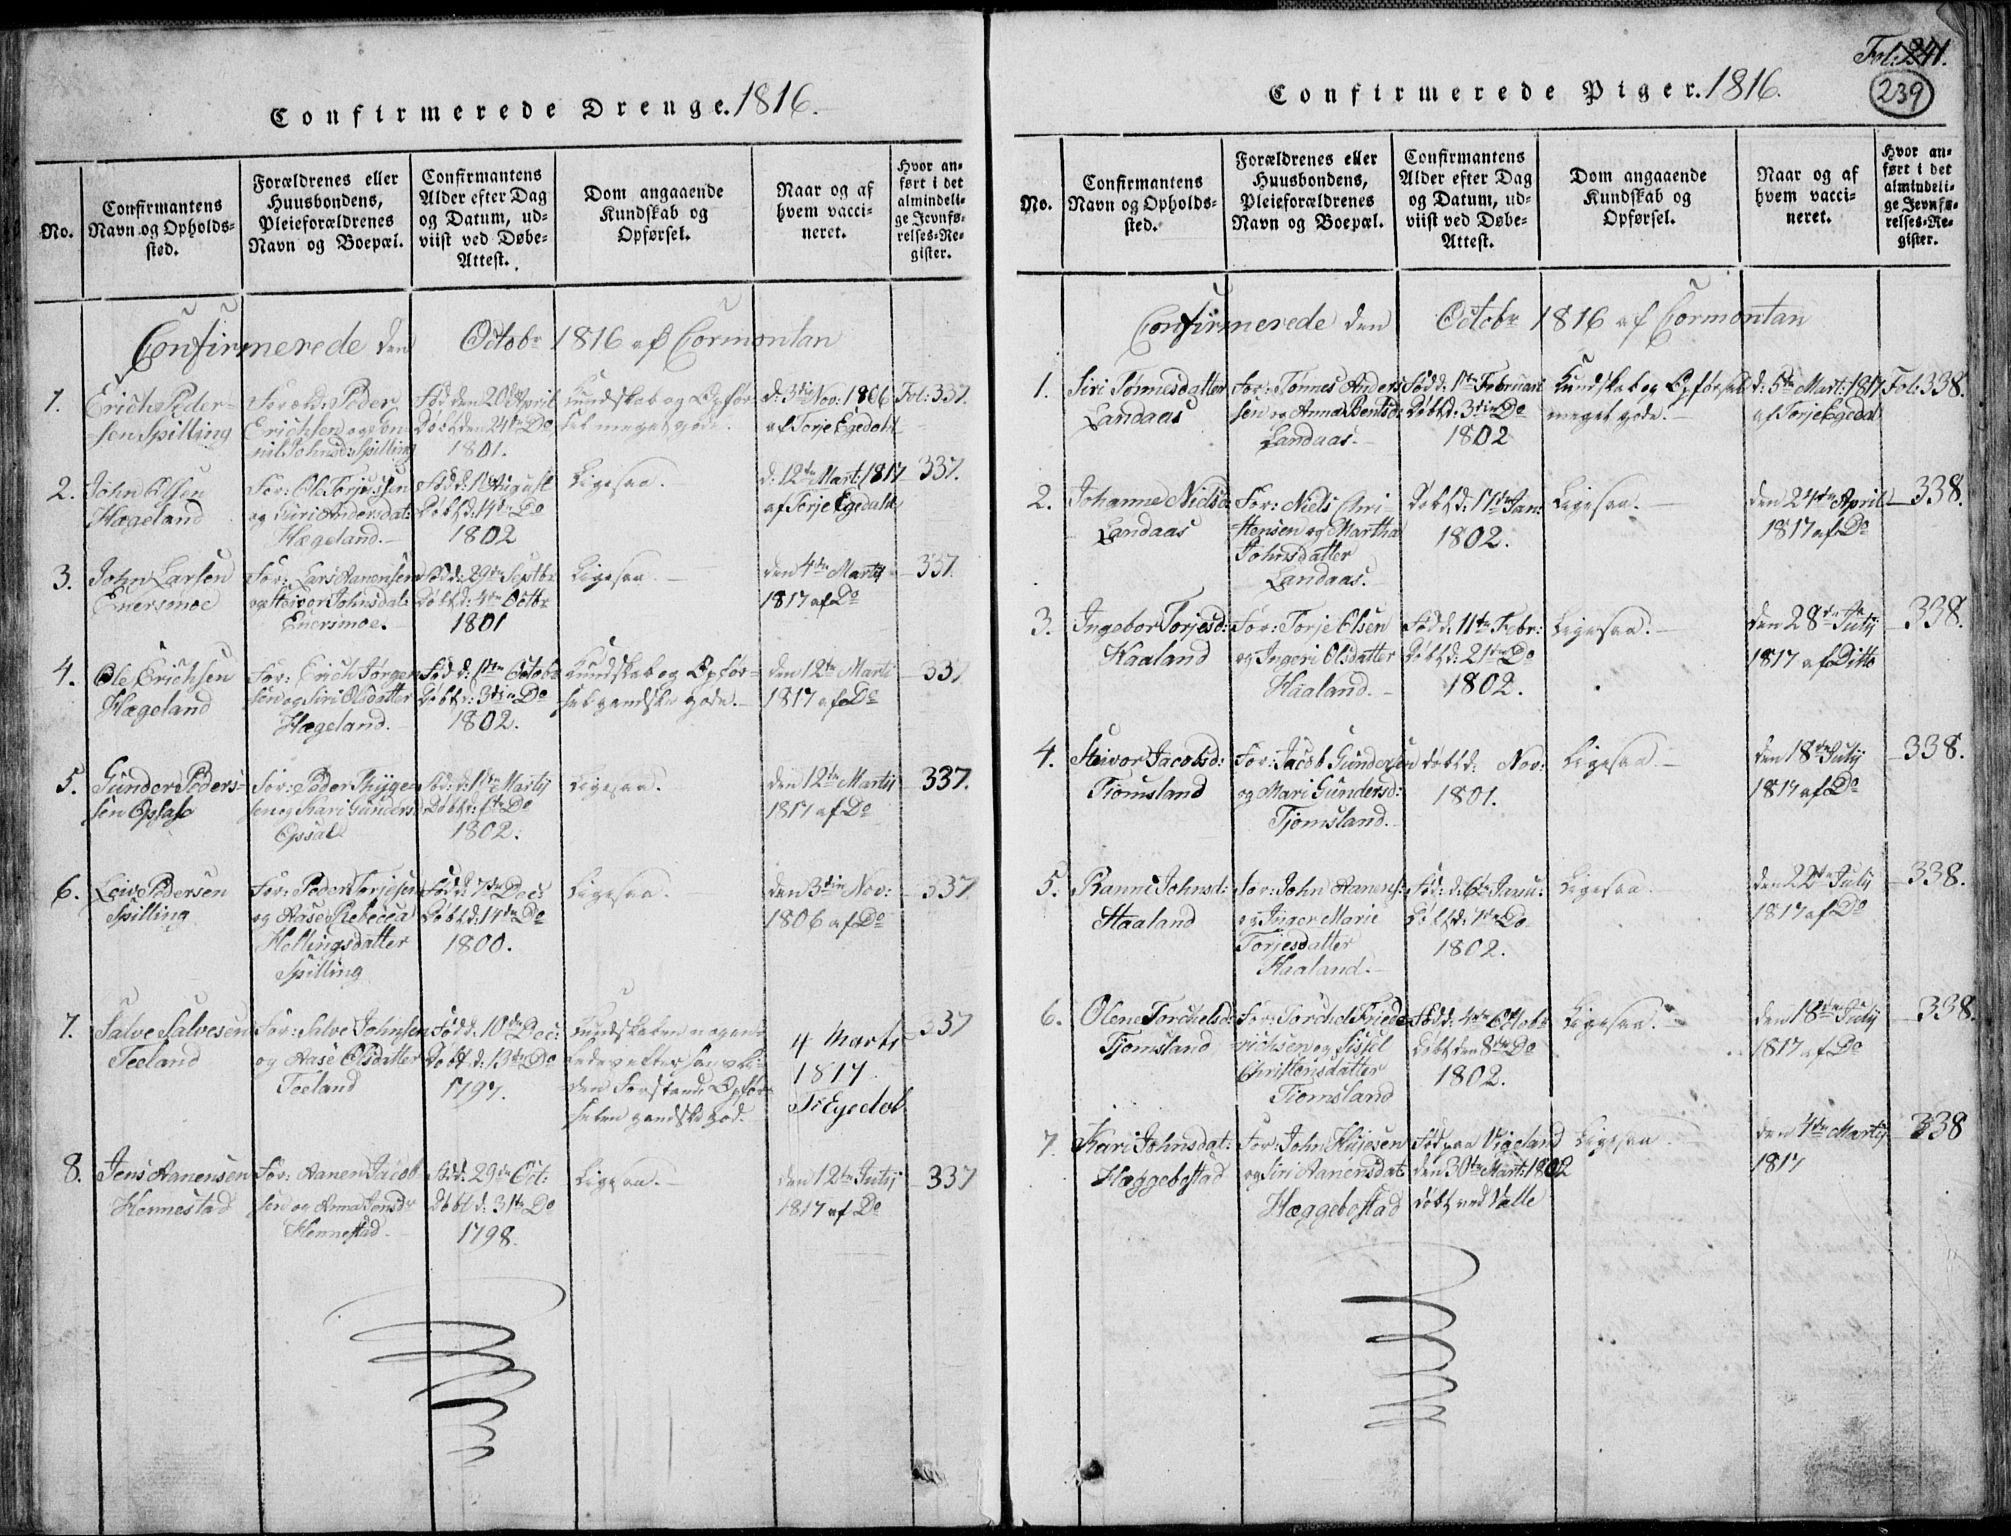 Confirmerede Drenge. 1816.
No.
Confirmantens
Navn og Opholds-
sted.
Forældrenes eller
Huusbondens,
Pleieforældrenes
Navn og Boepæl.
Confirmantens
Alder efter Dag
og Datum, ud-
viist ved Døbe-
Attest.
Dom angaaende
Kundskab og
Opførsel.
Naar og af
hvem vacci-
neret.
Hvor an-
ført i det
almindeli-
ge Jevnfø-
relses-Re-
gister.
Confirmerede den Octobr 1816 af Cormontan
1.
Erich Peder-
sen Spilling
Foræld: Peder
Erichsen og
Johnsd: Spilling
Fød den 20de April
Døbt den 24de Do
1801.
Kundskab og Opfør-
sel meget gode.
d: 3die Nov: 1806
af Torje Egedahl
Fol: 337.
2.
John Olsen
Hægeland
For: Ole Torjussen
og Siri Andersdat:
Hægeland.
Fød d: 1 August
Døbt d: 14de Do
1802
Ligesaa.
d: 12te Mart: 1817
af Torje Egedahl
337.
3.
John Larsen
Enersmoe
For: Lars Aanensen
og Heivor Johnsdat:
Enersmoe.
Fød d: 29de Septbr
Døbt d: 4de Octbr
1801
Ligesaa.
den 4de Martij
1817 af Do
337.
4.
Ole Erichsen
Hægeland
For: Erich Jørgen-
sen og Siri Olsdatter
Hægeland.
Fød d: 1ste Octobr
Døbt d: 3die Do
1802.
Kundskab og Opfør-
sel gandske gode.
den 12te Marti
1817 af Do
337
5.
Gunder Peders-
sen Opsahl
For: Peder Thÿgen-
sen og Kari Gunders:
Opsal
Fød d: 1ste Martij
Døbt d: Do
1802.
Ligesaa.
den 12te Martij
1817 af Do
337.
6.
Leive Pedersen
Spilling
For: Peder Torjesen
og Aase Rebecca
Hellingsdatter
Spilling
Fød d: 7de Dec:
Døbt d: 14de Do
1800.
Ligesaa.
den 3die Nov:
1806 af Do
337.
7.
Salve Salvesen
Teeland
For: Salve Johnsen
og Aase Olsdatter
Teeland
Fød d: 10de Dec:
Døbt d: 13de Do
1797.
Kundskaben nogen-
ledes efter hans
den Forstand: Opfør-
selen gandske god.
4 Marti
1817.
T: Egedal
337
8.
Jens Aanensen
Hennestad
For: Aanen Jacob-
sen og Anna Jensdr
Hennestad.
Fød d. 29de Oct:
Døbt d. 31te Do
1798.
Ligesaa.
den 12te Julij
1817 af Do
337
Fol: 241.
239
Confirmerede Piger. 1816.
No.
Confirmantens
Navn og Opholds-
sted.
Forældrenes eller
Huusbondens,
Pleieforældrenes
Navn og Boepæl.
Confirmantens
Alder efter Dag
og Datum, ud-
viist ved Døbe-
Attest.
Dom angaaende
Kundskab og
Opførsel.
Naar og af
hvem vacci-
neret.
Hvor an-
ført i det
almindeli-
ge Jevnfø-
relses-Re-
gister.
Confirmerede den Octobr 1816 af Cormontan
1.
Siri Tønnesdatter
Landaas
For: Tønnes Anders-
sen og Anna Bentsd:
Landaas.
Fød d: 1ste Februari
Døbt d: 3die Do
1802
Kundskab og Opførsel
meget gode.
d: 5te Mart: 1817
af Torje Egedal
Fol: 338.
2.
Johanne Nielsd:
Landaas
For: Niels Chri-
stensen og Martha
Johnsdatter
Landaas.
Døbt d: 17de Jan:
1802.
Ligesaa.
den 24de April
1817 af Do
338.
3.
Ingebor Torjesd:
Haaland
For: Torje Olsen
og Ingeri Olsdatter
Haaland.
Fød d: 11te Febr:
Døbt d: 21de Do
1802.
Ligesaa.
den 28de Julij
1817 af Ditto
338.
4.
Heivor Jacobsd:
Tiomsland
For: Jacob Gundersen
og Mari Gundersd:
Tjomsland.
døbt d: Nov:
1801.
Ligesaa.
den 18de Julij
1817 af Do
338.
5.
Ranni Johnsd:
Haaland
For: John Aanens:
og Inger Marie
Torjesdatter
Haaland.
Fød: d. 6te Janu:
Døbt d: 7de Do
1802.
Ligesaa
den 22de Julij
1817 af Do
338.
6.
Olene Torchelsd:
Tjomsland
For: Torchel Friede-
richsen og Sissel
Christensdatter
Tiomsland
Fød d: 4de Octobr
Døbt den 8de Do
1802.
Ligesaa.
den 18de Julij
1817 af Do
338.
7.
Kari Johnsdat:
Hæggebostad
For: John
og Siri Aanensdat:
Hæggebostad
Fød paa Vigeland
den 30te Mart: 1802
døbt ved Valle
Ligesaa
den 4de Martij
1817
338